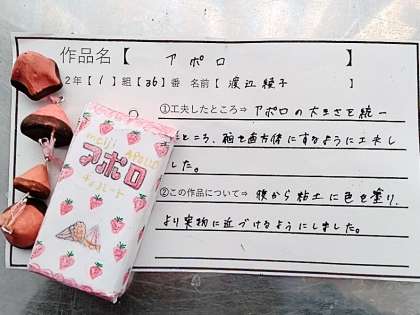 作品名【 アポロ 】
2年【1】組【36】番 名前【渡辺綾子】
①工夫したところ⇒アポロの大きさを統一
ところ、箱を直方体にするように工夫し
した。
②この作品について⇒後から粘土に色を塗り、
より実物に近づけるようにしました。
meiji APOLLO
アポロ
チョコレート